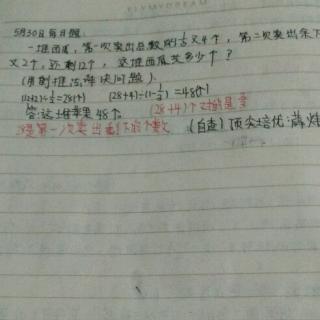 5月30日 每日一题
一堆西瓜,第一次卖出总数的 1/3 又4个,第二次卖出余下
又2个,还剩12个,这堆西瓜共多少个?
(用倒推法解决问题)
(12+2)÷1/2=28(个) (28+4)÷(1-1/3)=48(个)
答:这堆苹果48个。 (28+4)个对应的是
是第一次卖出剩下的个数 (自查) 顶尖培优:薛